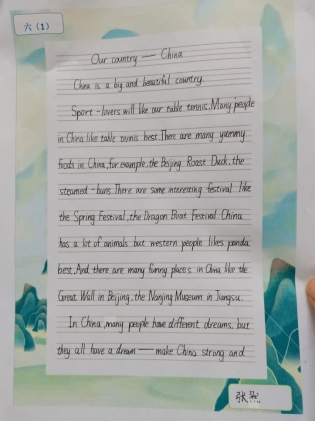 六(1)
Our country — China
China is a big and beautiful country.
Sport-lovers will like our table tennis. Many people
in China like table tennis best. There are many yummy
foods in China, for example, the Beijing Roast Duck, the
steamed-buns. There are some interesting festival like
the Spring Festival, the Dragon Boat Festival. China
has a lot of animals but western people likes panda
best. And there are many funny places in China, like the
Great Wall in Beijing, the Nanjing Museum in Jiangsu.
In China, many people have different dreams, but
they all have a dream — make China strong and
张